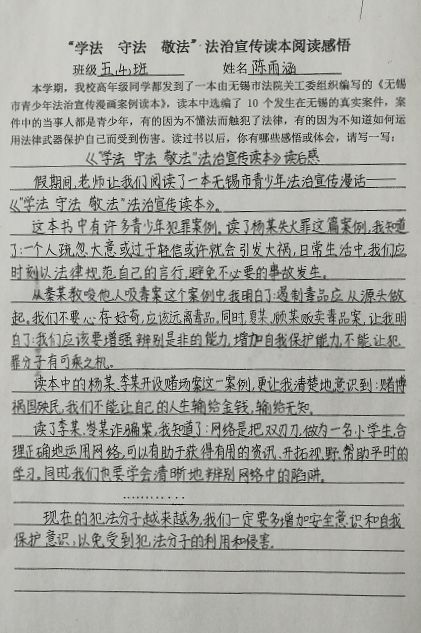 “学法　守法　敬法”法治宣传读本阅读感悟
班级 五.(4).班　姓名 陈雨涵
本学期，我校高年级同学都发到了一本由无锡市法院关工委组织编写的《无锡
市青少年法治宣传漫画案例读本》，读本中选编了 10 个发生在无锡的真实案件，案
件中的当事人都是青少年，有的因为不懂法而触犯了法律，有的因为不知道如何运
用法律武器保护自己而受到伤害。读过书以后，你有哪些感悟或体会，请写一写：
《“学法 守法 敬法”法治宣传读本》读后感
假期间，老师让我们阅读了一本无锡市青少年法治宣传漫话——
《“学法 守法 敬法”法治宣传读本》。
这本书中有许多青少年犯罪案例。读了杨某失火罪这篇案例，我知道
了：一个人疏忽大意或过于轻信或许就会引发大祸，日常生活中，我们应
时刻以法律规范自己的言行，避免不必要的事故发生。
从秦某教唆他人吸毒案这个案例中，我明白了：遏制毒品应从源头做
起。我们不要心存好奇，应该远离毒品。同时，夏某、顾某贩卖毒品案，让我明
白了：我们应该要增强辨别是非的能力，增加自我保护能力，不能让犯
罪分子有可乘之机。
读本中的杨某、李某开设赌场案这一案例，更让我清楚地意识到：赌博
祸国殃民，我们不能让自己的人生输给金钱，输给无知。
读了李某、岑某诈骗案，我知道了：网络是把双刃刀，做为一名小学生，合
理正确地运用网络，可以有助于获得有用的资讯、开拓视野、帮助平时的
学习。同时，我们也要学会清晰地辨别网络中的陷阱。
…………
现在的犯法分子越来越多，我们一定要多增加安全意识和自我
保护意识，以免受到犯法分子的利用和侵害.